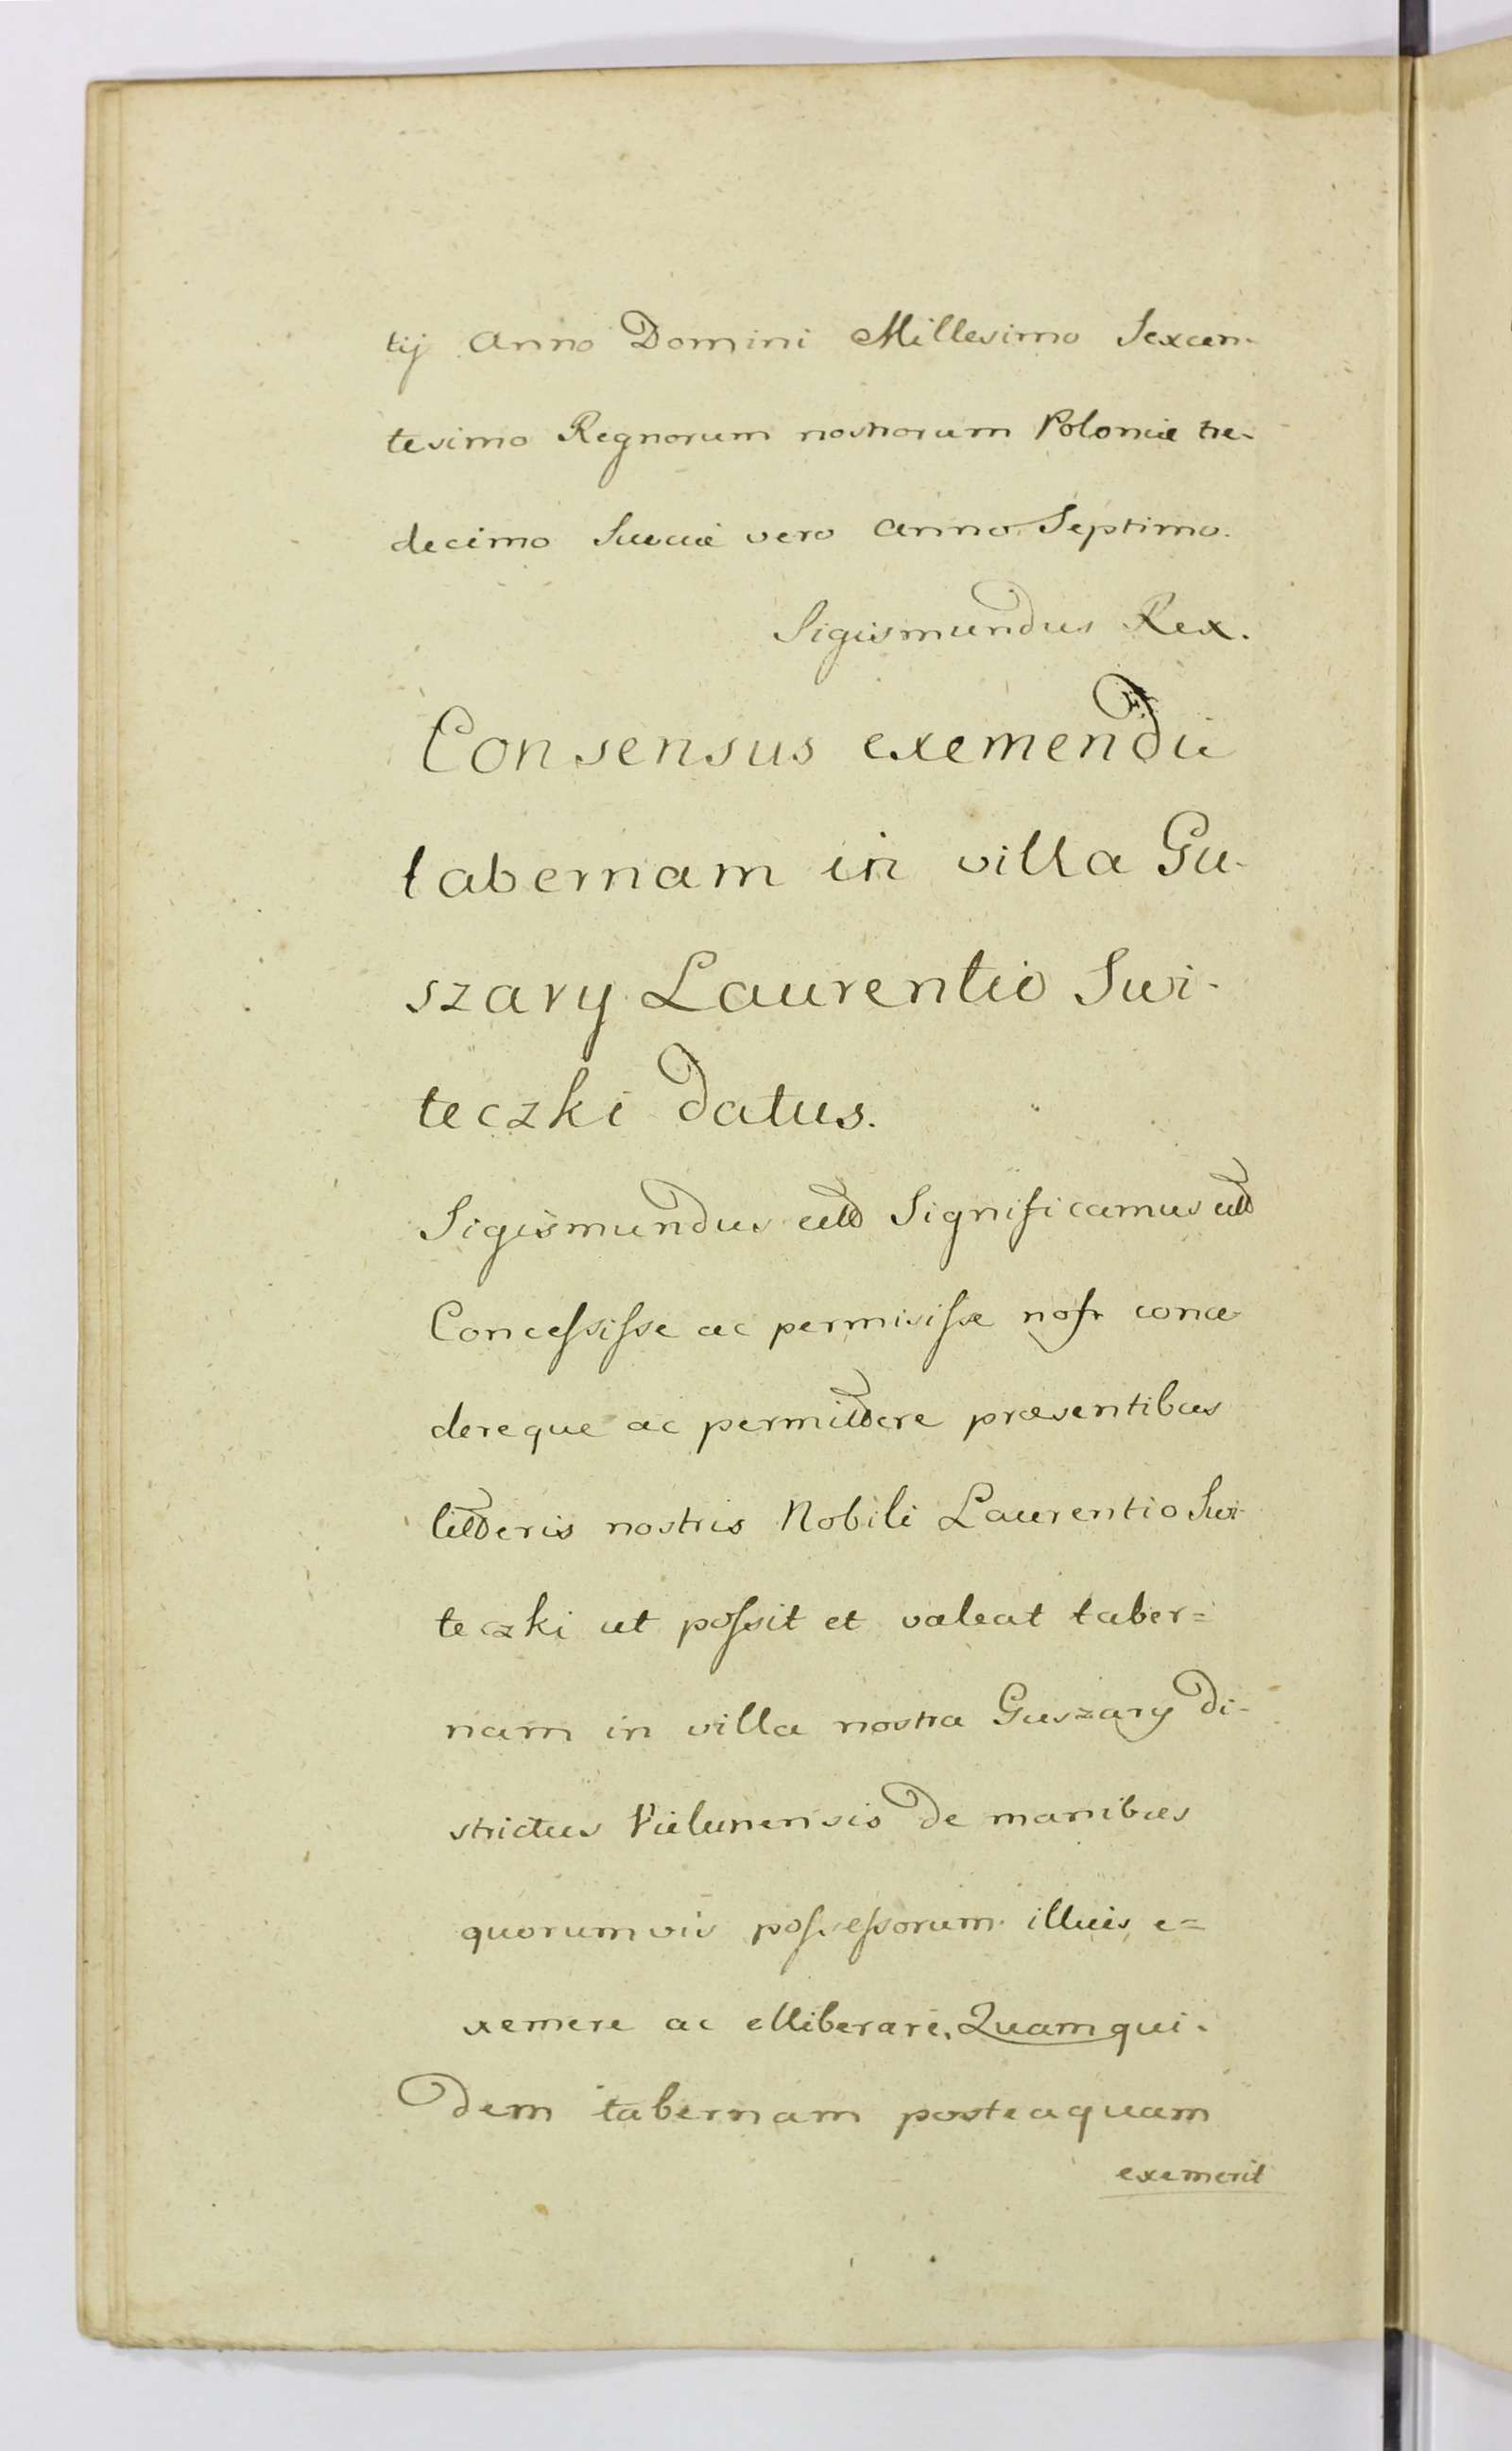 tij Anno Domini Millesimo Sexcen-
tesimo Regnorum nostrorum Poloniæ tre-
decimo Sueciæ vero anno Septimo.
Sigismundus Rex.
Consensus exemendi
tabernam in villa Gu-
szary Laurentio Swi-
teczki datus.
Sigismundus ettc Significamus ettc
Concessisse ac permisisse nos conce-
dereque ac permittere præsentibus
litteris nostris Nobili Laurentio Swi-
teczki ut possit et valeat taber=
nam in villa nostra Guszary di-
strictus Vielunensis de manibus
quorumvis possessorum illius e=
xemere ac elliberare. Quam qui-
dem tabernam posteaquam
exemerit